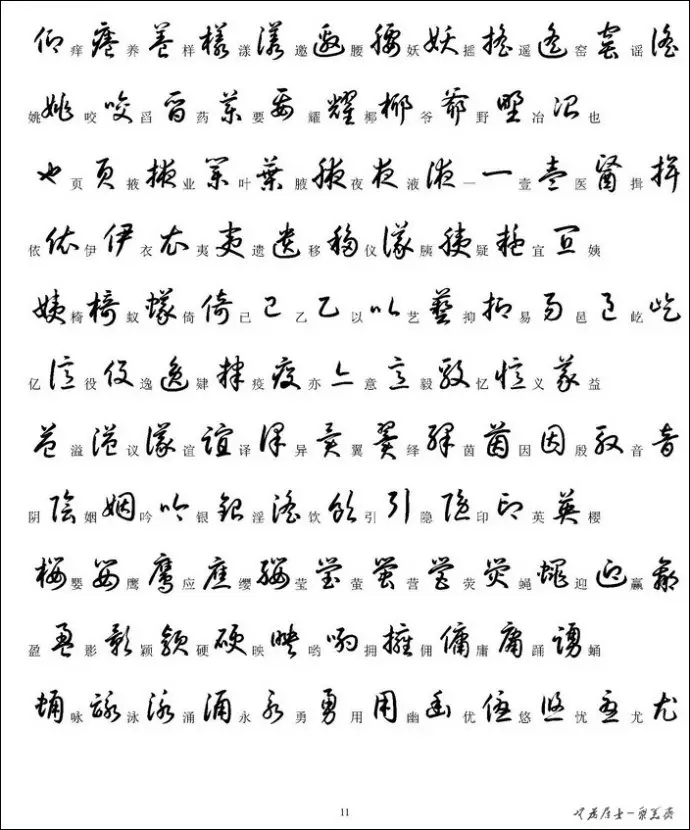 仰 痒 癢 养 養 样 樣 漾 漾 邀 邀 腰 腰 妖 妖 摇 搖 遥 遙 窑 窰 谣 謠
姚 姚 咬 咬 舀 舀 药 藥 要 要 耀 耀 椰 椰 爷 爺 野 野 冶 冶 也
也 页 頁 掖 掖 业 業 叶 葉 腋 腋 夜 夜 液 液 一 一 壹 壹 医 醫 揖 揖
依 依 伊 伊 衣 衣 夷 夷 遗 遺 移 移 仪 儀 胰 胰 疑 疑 宜 宜 姨
姨 椅 椅 蚁 蟻 倚 倚 已 已 乙 乙 以 以 艺 藝 抑 抑 易 易 邑 邑 屹 屹
亿 億 役 役 逸 逸 肄 肄 疫 疫 亦 亦 意 意 毅 毅 忆 憶 义 義 益
益 溢 溢 议 議 谊 誼 译 譯 异 異 翼 翼 绎 繹 茵 茵 因 因 殷 殷 音 音
阴 陰 姻 姻 吟 吟 银 銀 淫 淫 饮 飲 引 引 隐 隱 印 印 英 英 樱
櫻 婴 嬰 鹰 鷹 应 應 缨 纓 莹 瑩 萤 螢 营 營 荧 熒 蝇 蠅 迎 迎 赢 贏
盈 盈 影 影 颖 穎 硬 硬 映 映 哟 喲 拥 擁 佣 傭 庸 庸 踊 踴 蛹
蛹 咏 詠 泳 泳 涌 涌 永 永 勇 勇 用 用 幽 幽 优 優 悠 悠 忧 憂 尤 尤
11